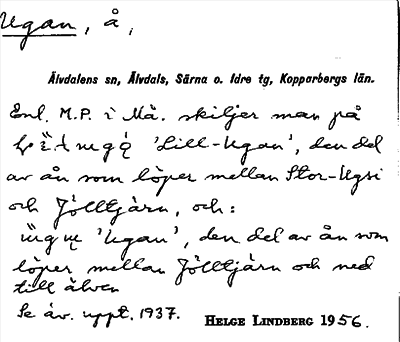 Ugan, å,
Älvdalens sn, Älvdals, Särna o. Idre tg, Kopparbergs län.
Enl. M.P. i Må. skiljer man på
'Lill-Ugan', den del
av ån som löper mellan Stor-Ugsi
och Jölltjärn, och:
'Ugan', den del av ån som
löper mellan Jölltjärn och ned
till älven
Se äv. uppt. 1937. HELGE LINDBERG 1956.